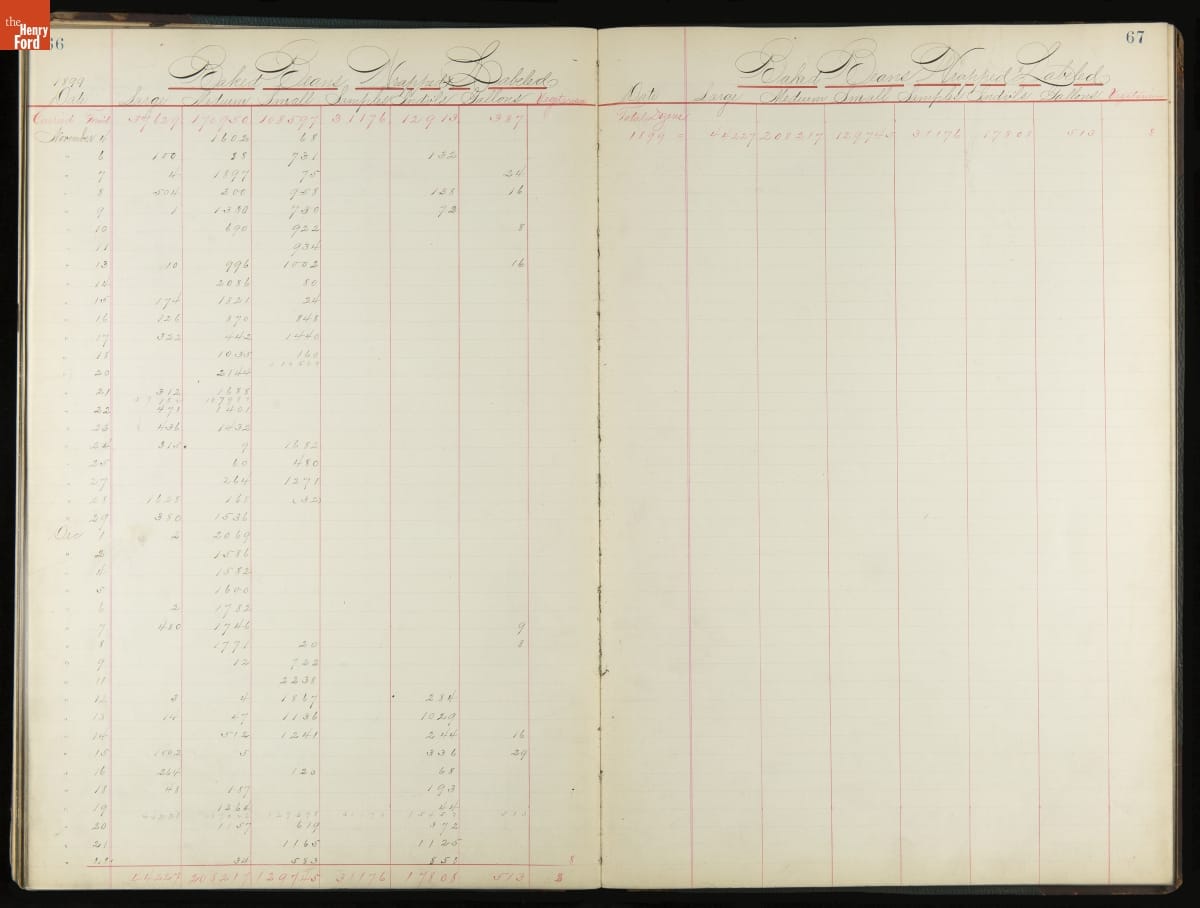 the
Henry
Ford
66
Baked Beans Wrapped & Labeled
1899
Date Large Medium Small Samples Individls Gallons Vegetarian
Carried Forwd 37629 170950 108597 31176 12913 387
November 4 1602 68
" 6 150 88 731 132
" 7 4 1897 75 24
" 8 504 200 958 128 16
" 9 1 1380 750 72
" 10 690 922 8
" 11 934
" 13 10 996 1002 16
" 14 2086 80
" 15 174 1821 24
" 16 126 870 848
" 17 322 442 1440
" 18 1035 160
" 20 2144
" 21 312 1688
" 22 478 1401
" 23 436 1432
" 24 315 9 1682
" 25 60 480
" 27 264 1271
" 28 1628 168 (32)
" 29 380 1536
Dec 1 2 2069
" 2 1586
" 4 1582
" 5 1600
" 6 2 1782
" 7 480 1746 9
" 8 1771 20 8
" 9 12 722
" 11 2238
" 12 3 4 1867 284
" 13 14 47 1136 1029
" 14 512 1241 244 16
" 15 1592 5 336 29
" 16 264 120 68
" 18 48 187 193
" 19 1264 44
" 20 1157 619 372
" 21 1165 1125
" 22 34 583 858 8
44227 208217 129745 31176 17808 513 8
67
Baked Beans Wrapped Labeled
Date Large Medium Small Samples Individls Gallons Vegetarian
Total Dozens
1899 = 44227 208217 129745 31176 17808 513 8